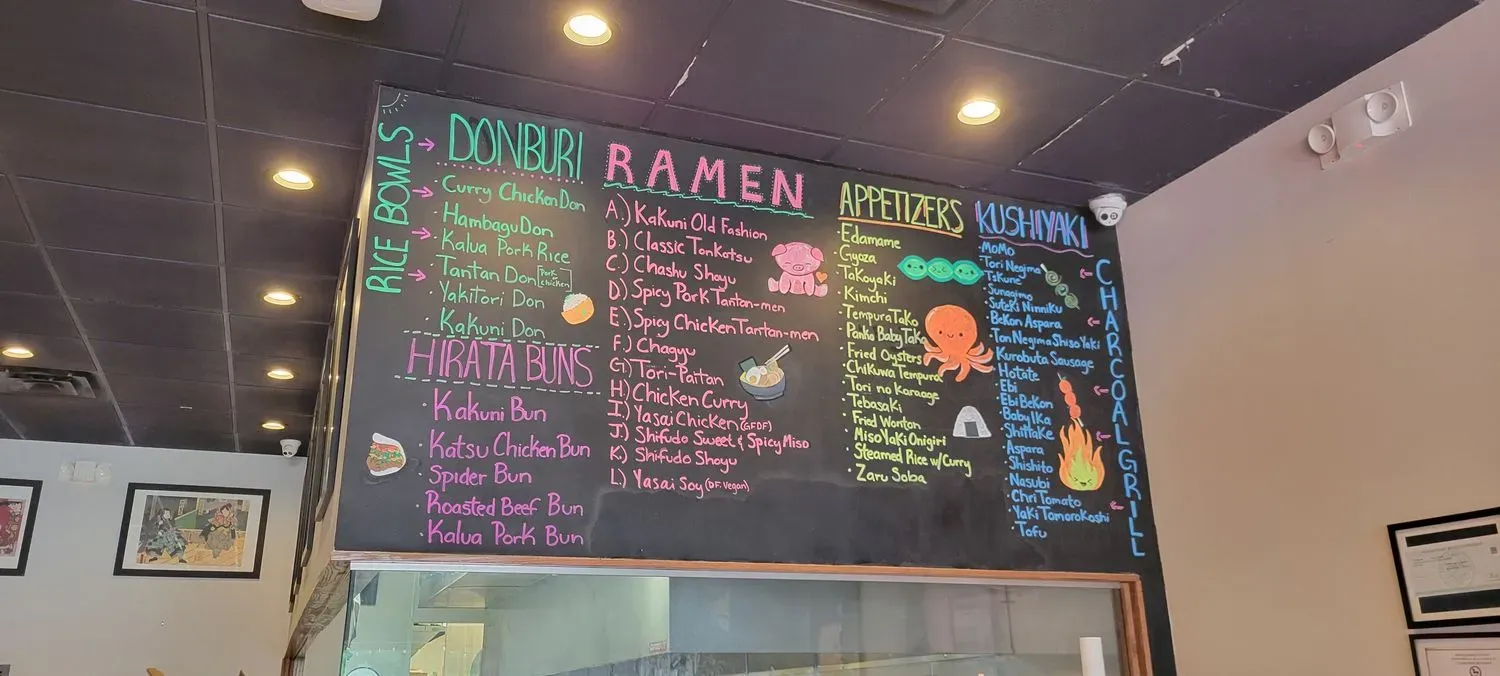 RICE BOWLS
DONBURI
Curry Chicken Don
Hambagu Don
Kalua Pork Rice
Tantan Don [Pork chicken]
Yakitori Don
Kakuni Don
HIRATA BUNS
Kakuni Bun
Katsu Chicken Bun
Spider Bun
Roasted Beef Bun
Kalua Pork Bun
RAMEN
A.) Kakuni Old Fashion
B.) Classic Tonkotsu
C.) Chashu Shoyu
D.) Spicy Pork Tantan-men
E.) Spicy Chicken Tantan-men
F.) Chagyu
G.) Tori-Paitan
H.) Chicken Curry
I.) Yasai Chicken (GFDF)
J.) Shifudo Sweet & Spicy Miso
K.) Shifudo Shoyu
L.) Yasai Soy (DF. Vegan)
APPETIZERS
Edamame
Gyoza
Takoyaki
Kimchi
Tempura Tako
Panko Baby Tako
Fried Oysters
Chikuwa Tempura
Tori no Karaage
Tebasaki
Fried Wonton
Miso Yaki Onigiri
Steamed Rice w/Curry
Zaru Soba
KUSHIYAKI
MoMo
Tori Negima
Tskune
Sunagimo
Suteki Ninniku
Bekon Aspara
Ton Negima Shiso Yaki
Kurobuta Sausage
Hotate
Ebi
Ebi Bekon
Baby Ika
Shiitake
Aspara
Shishito
Nasubi
Chri Tomato
Yaki Tomorokoshi
Tofu
CHARCOAL GRILL